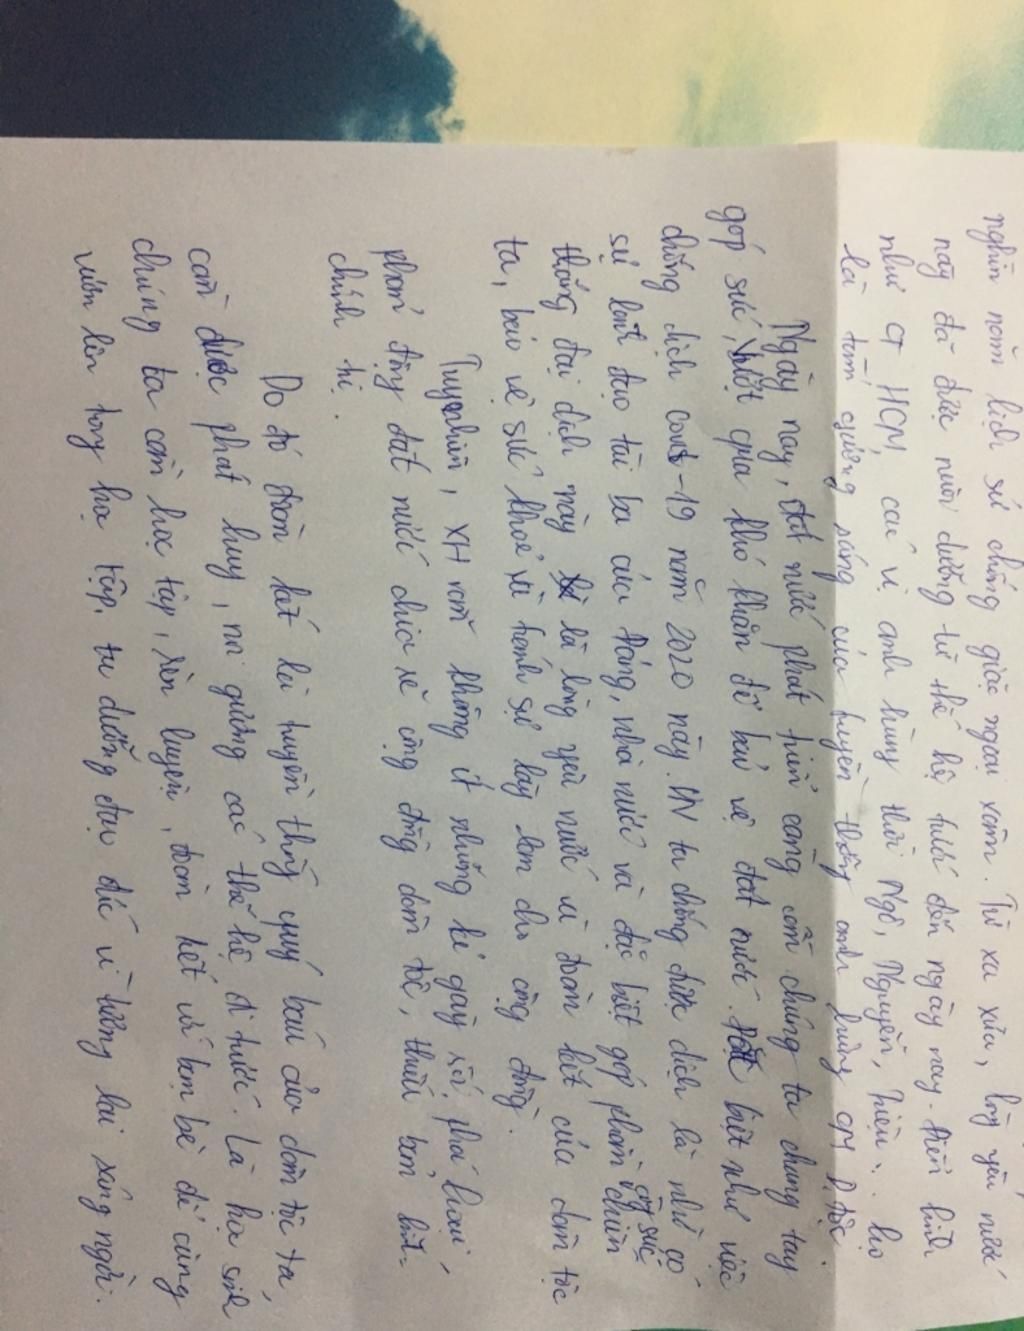 nghìn năm lịch sử chống giặc ngoại xâm. Từ xa xưa, lòng yêu nước
này đã được nuôi dưỡng từ thế hệ trước đến ngày nay. Điển hình
như CT HCM, các vị anh hùng thời Ngô, Nguyễn, hiện... họ
là tấm gương sáng của truyền thống anh hùng CM d.tộc
Ngày nay, đất nước phát triển càng cần chúng ta chung tay
góp sức, vượt qua khó khăn để bảo vệ đất nước. Đặc biệt như việc
chống dịch covid-19 năm 2020 này. VN ta chống được dịch là nhờ có
sự lãnh đạo tài ba của Đảng, nhà nước và đặc biệt góp phần công sức chiến
thắng đại dịch này là lòng yêu nước và đoàn kết của dân tộc
ta, bảo vệ sức khoẻ và hành sự lây lan cho cộng đồng.
Tuy nhiên, XH vẫn không ít những kẻ gây rối, phá hoại
phản động đất nước chia rẽ cộng đồng dân tộc, thiếu bản lĩnh
chính trị.
Do đó đoàn kết là truyền thống quý báu của dân tộc ta,
cần được phát huy, noi gương các thế hệ đi trước. Là học sinh
chúng ta cần học tập, rèn luyện, đoàn kết với bạn bè để cùng
vươn lên trong học tập, tu dưỡng đạo đức vì tương lai sáng ngời.